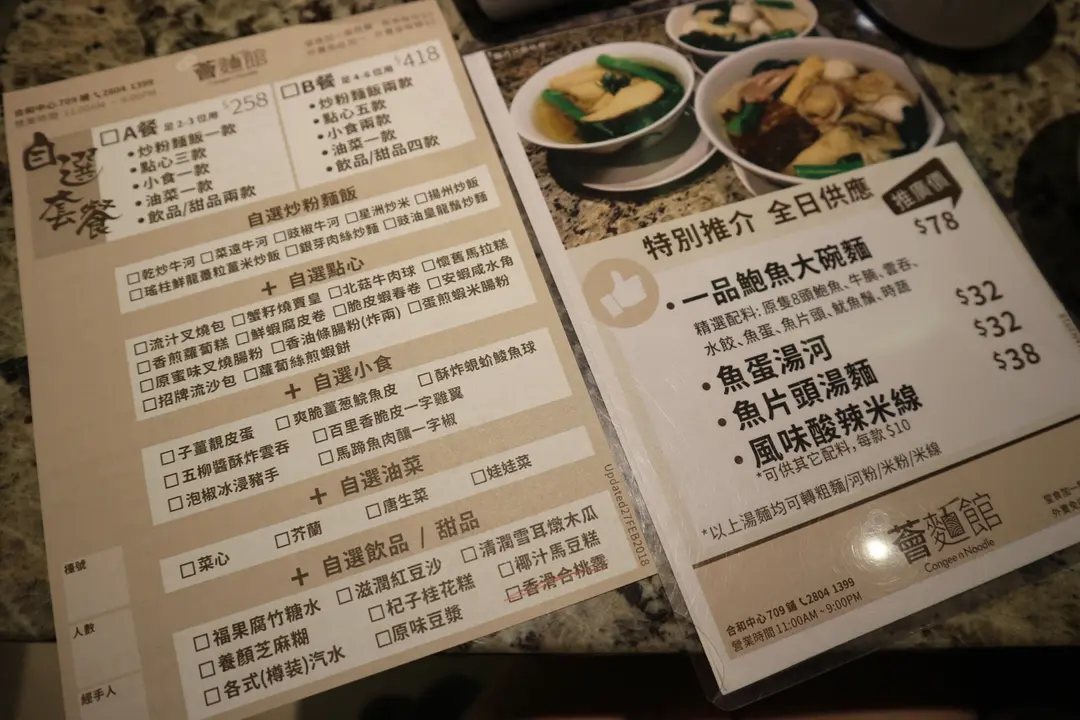 薈麵館
合和中心709鋪 2804 1399
營業時間 11:00AM ~ 9:00PM
自選套餐
A餐 足2-3位用 $258
• 炒粉麵飯一款
• 點心三款
• 小食一款
• 油菜一款
• 飲品/甜品兩款
B餐 足4-6位用 $418
• 炒粉麵飯兩款
• 點心五款
• 小食兩款
• 油菜一款
• 飲品/甜品四款
自選炒粉麵飯
乾炒牛河 菜遠牛河 豉椒牛河 星洲炒米 揚州炒飯
瑤柱鮮龍躉粒薑米炒飯 銀芽肉絲炒麵 豉油皇龍鬚炒麵
+ 自選點心
流汁叉燒包 蟹籽燒賣皇 北菇牛肉球 懷舊馬拉糕
香煎蘿蔔糕 鮮蝦腐皮卷 脆皮蝦春卷 安蝦咸水角
原蜜味叉燒腸粉 香油條腸粉(炸兩) 蛋煎蝦米腸粉
招牌流沙包 蘿蔔絲煎蝦餅
+ 自選小食
子薑靚皮蛋 爽脆薑葱鯇魚皮 酥炸蜆蚧鯪魚球
五柳醬酥炸雲吞 百里香脆皮一字雞翼
泡椒冰浸豬手 馬蹄魚肉釀一字椒
+ 自選油菜
菜心 芥蘭 唐生菜 娃娃菜
+ 自選飲品 / 甜品
福果腐竹糖水 滋潤紅豆沙 清潤雪耳燉木瓜
養顏芝麻糊 杞子桂花糕 椰汁馬豆糕
各式(樽装)汽水 原味豆漿 香滑合桃露
Updated27FEB2018
檯號
人數
經手人
特別推介 全日供應
推廣價
• 一品鮑魚大碗麵 $78
精選配料: 原隻8頭鮑魚、牛腩、雲吞、
水餃、魚蛋、魚片頭、魷魚鬚、時蔬
• 魚蛋湯河 $32
• 魚片頭湯麵 $32
• 風味酸辣米線 $38
*可供其它配料, 每款$10
*以上湯麵均可轉粗麵/河粉/米粉/米線
薈麵館
Congee n Noodle
合和中心709鋪 2804 1399
營業時間 11:00AM ~ 9:00PM